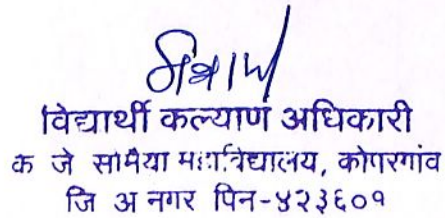 विद्यार्थी कल्याण अधिकारी
क जे सोमैया महाविद्यालय, कोपरगांव
जि अ नगर पिन-४२३६०१